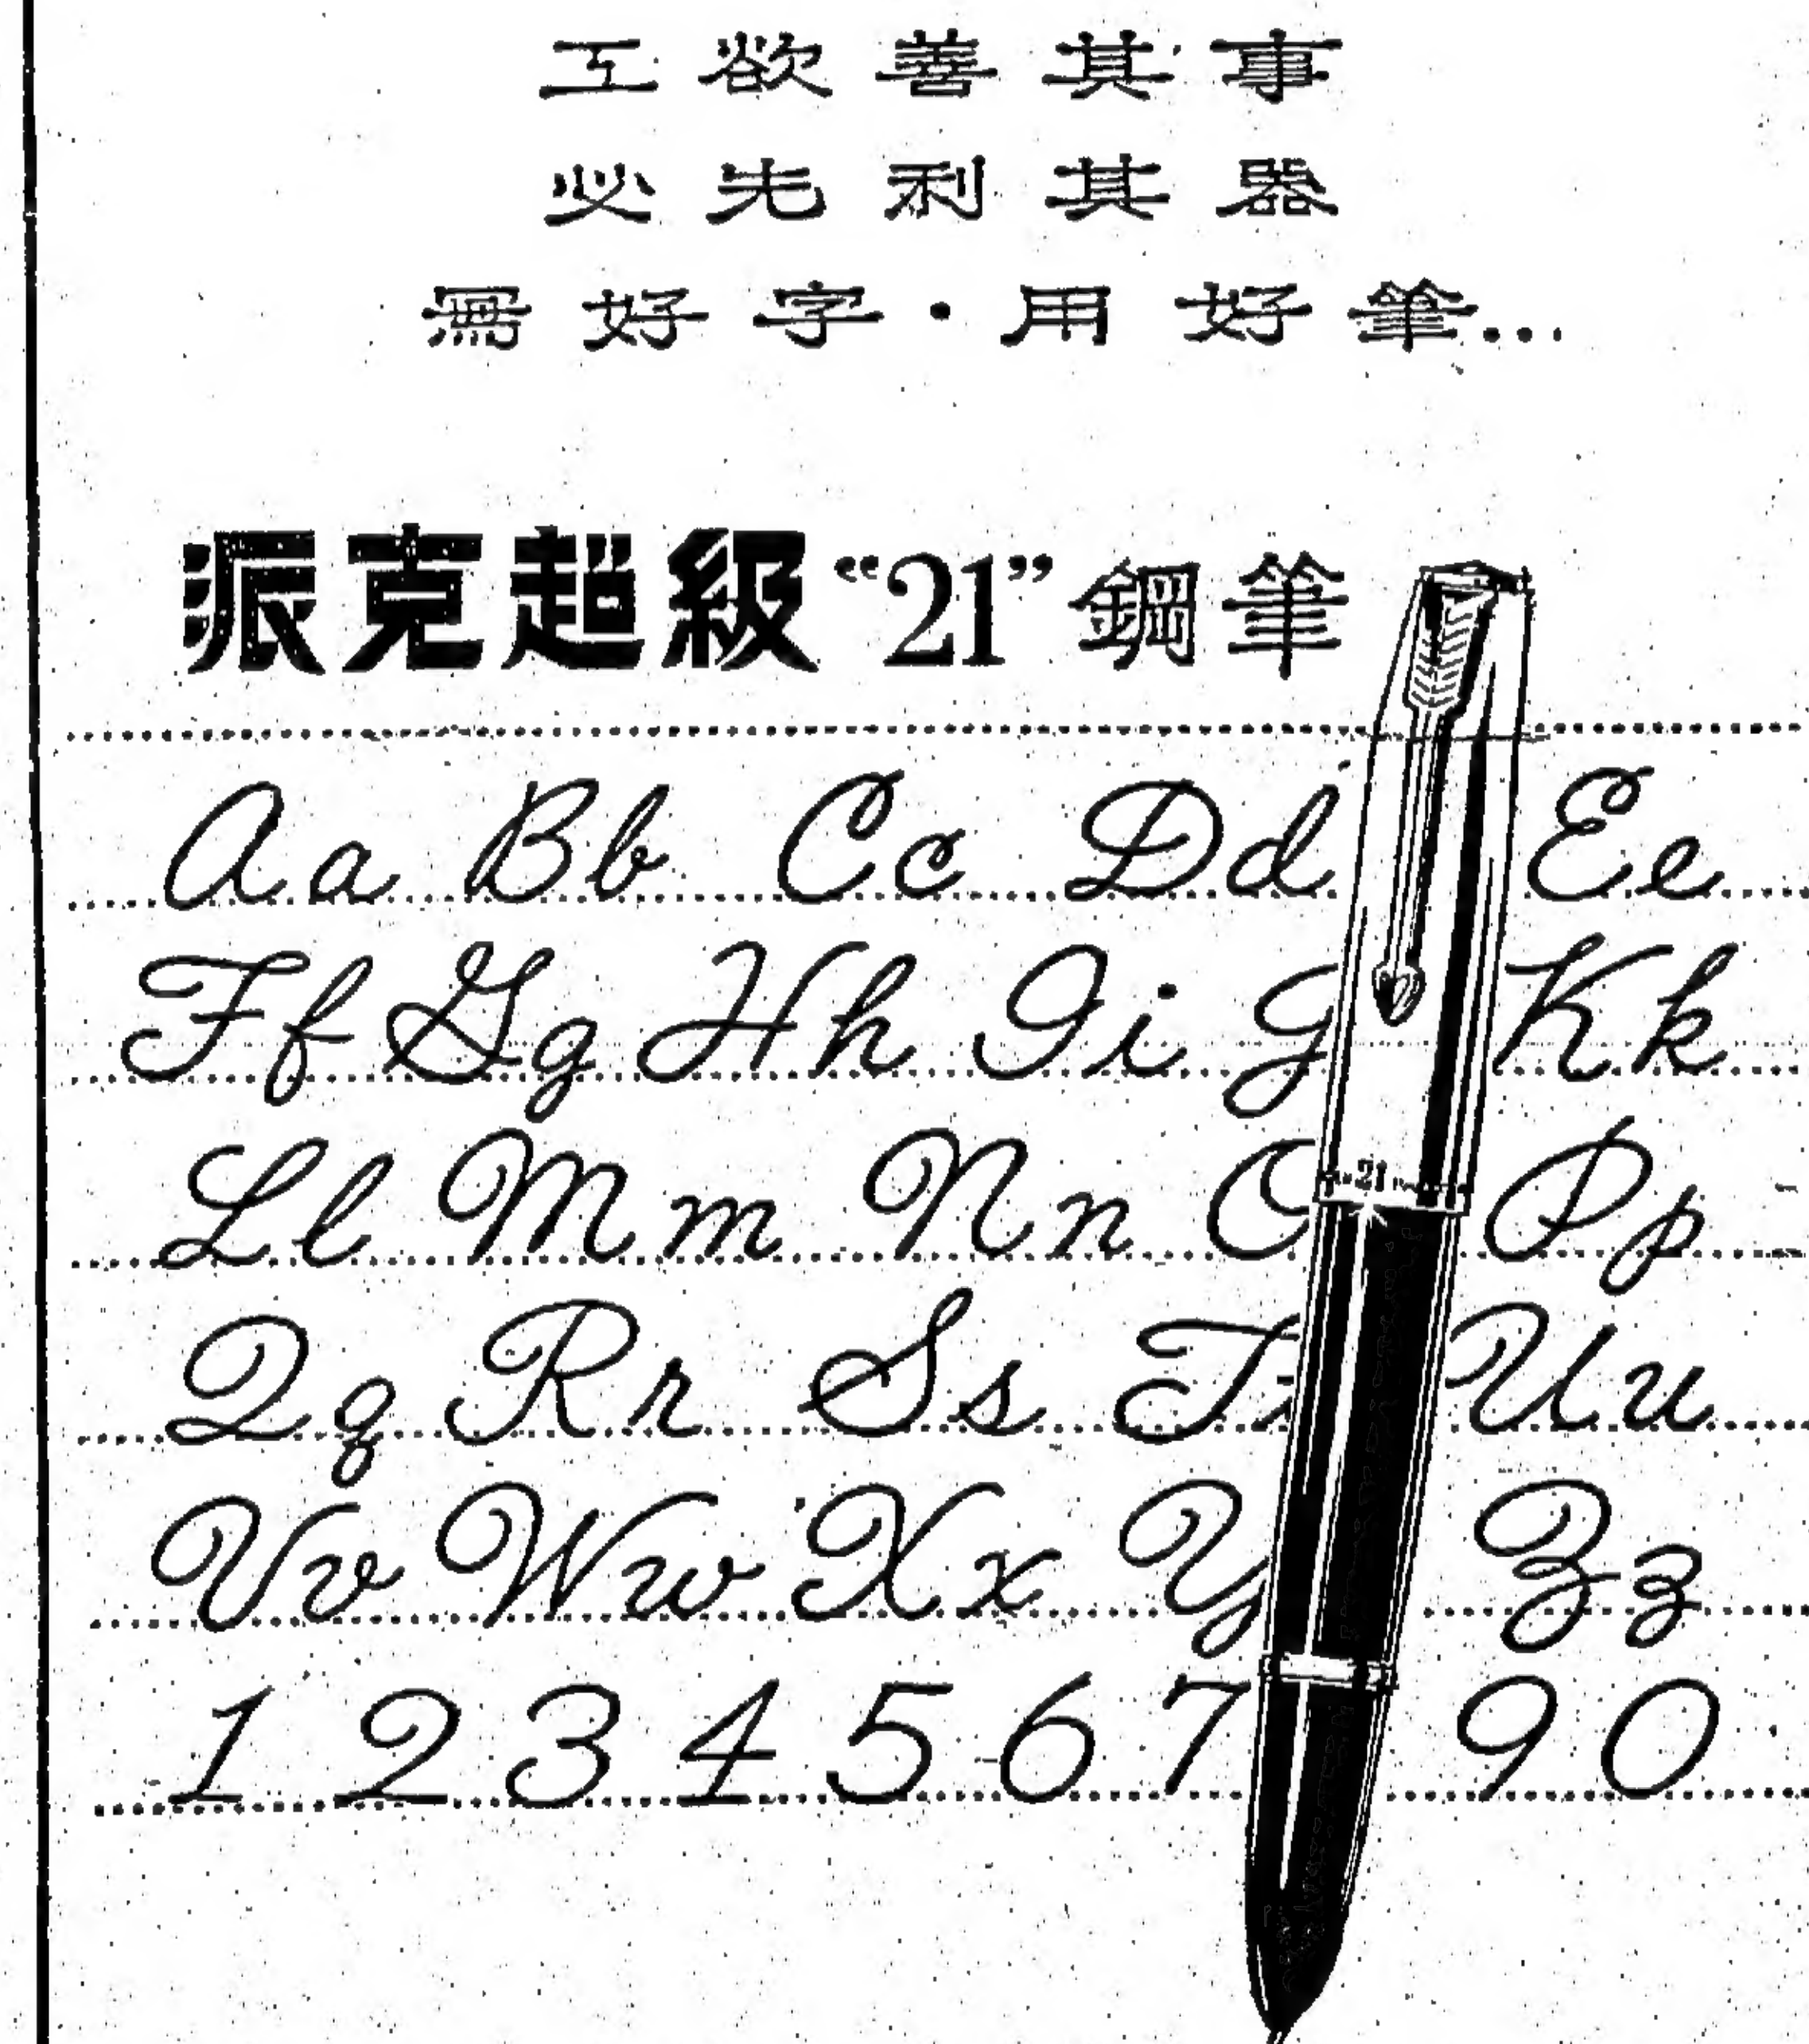 工欲善其事
必先利其器
寫好字·用好筆...
派克超級“21”鋼筆
Aa Bb Cc Dd Ee
Ff Gg Hh Ii J Kk
Ll Mm Nn O Pp
Qq Rr Ss T Uu
Vv Ww Xx Y Zz
1 2 3 4 5 6 7 9 0
21